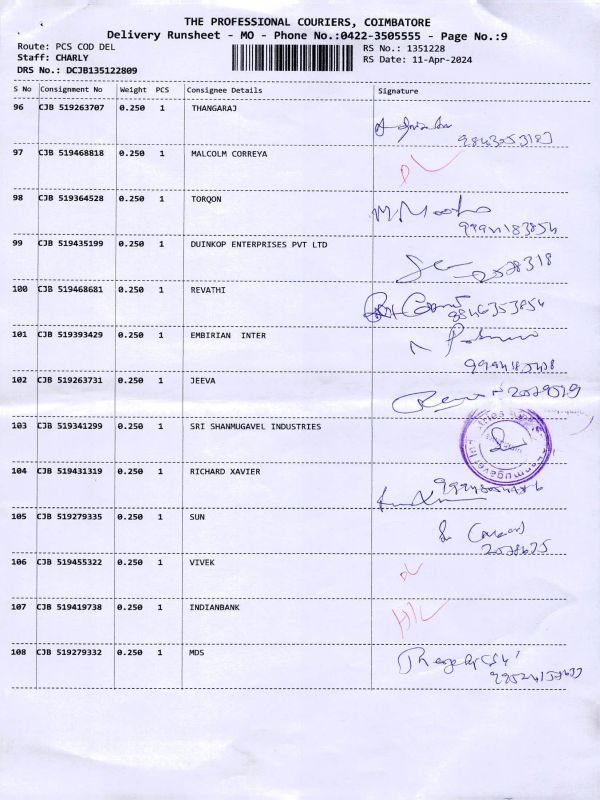 THE PROFESSIONAL COURIERS, COIMBATORE
Delivery Runsheet - MO - Phone No.:0422-3505555 - Page No.:9
Route: PCS COD DEL RS No.: 1351228
Staff: CHARLY RS Date: 11-Apr-2024
DRS No.: DCJB135122809
S No Consignment No Weight PCS Consignee Details Signature
96 CJB 519263707 0.250 1 THANGARAJ
97 CJB 519468818 0.250 1 MALCOLM CORREYA
98 CJB 519364528 0.250 1 TORQON
99 CJB 519435199 0.250 1 DUINKOP ENTERPRISES PVT LTD
2578318
100 CJB 519468681 0.250 1 REVATHI
101 CJB 519393429 0.250 1 EMBIRIAN INTER
102 CJB 519263731 0.250 1 JEEVA
103 CJB 519341299 0.250 1 SRI SHANMUGAVEL INDUSTRIES
104 CJB 519431319 0.250 1 RICHARD XAVIER
105 CJB 519279335 0.250 1 SUN
106 CJB 519455322 0.250 1 VIVEK
107 CJB 519419738 0.250 1 INDIANBANK
108 CJB 519279332 0.250 1 MDS